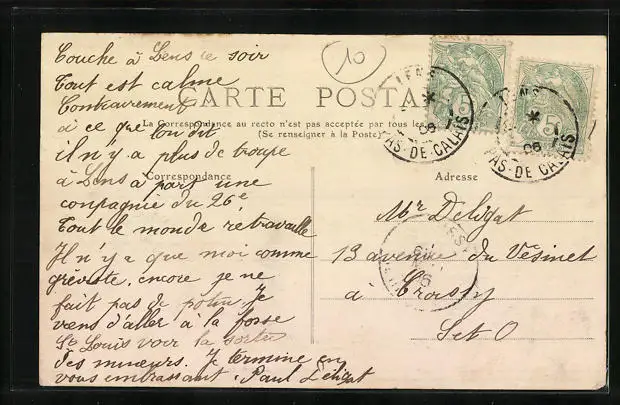 Couche à Lens ce soir
Tout est calme
Contrairement
à ce que l'on dit
il n'y a plus de troupe
à Lens à part une
compagnie du 26e
Tout le monde retravaille
Il n'y a que moi comme
gréviste, encore je ne
fait pas de potin. Je
viens d'aller à la fosse
St Louis voir la sortie
des mineurs. Je termine en
vous embrassant. Paul Deligat
10
CARTE POSTALE
La Correspondance au recto n'est pas acceptée par tous les
(Se renseigner à la Poste)
Correspondance
Adresse
LENS
06
PAS-DE-CALAIS
5
LENS
06
PAS-DE-CALAIS
5
Mr Deligat
13 avenue du Vésinet
à Croissy
S et O